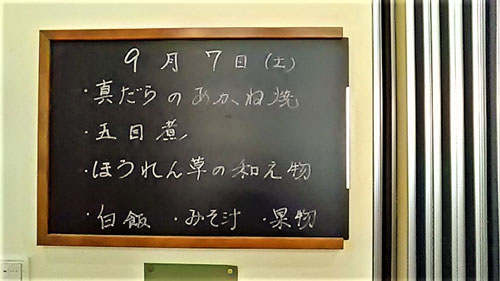 9月7日(土)
・真だらのあかね焼
・五目煮
・ほうれん草の和え物
・白飯 ・みそ汁 ・果物